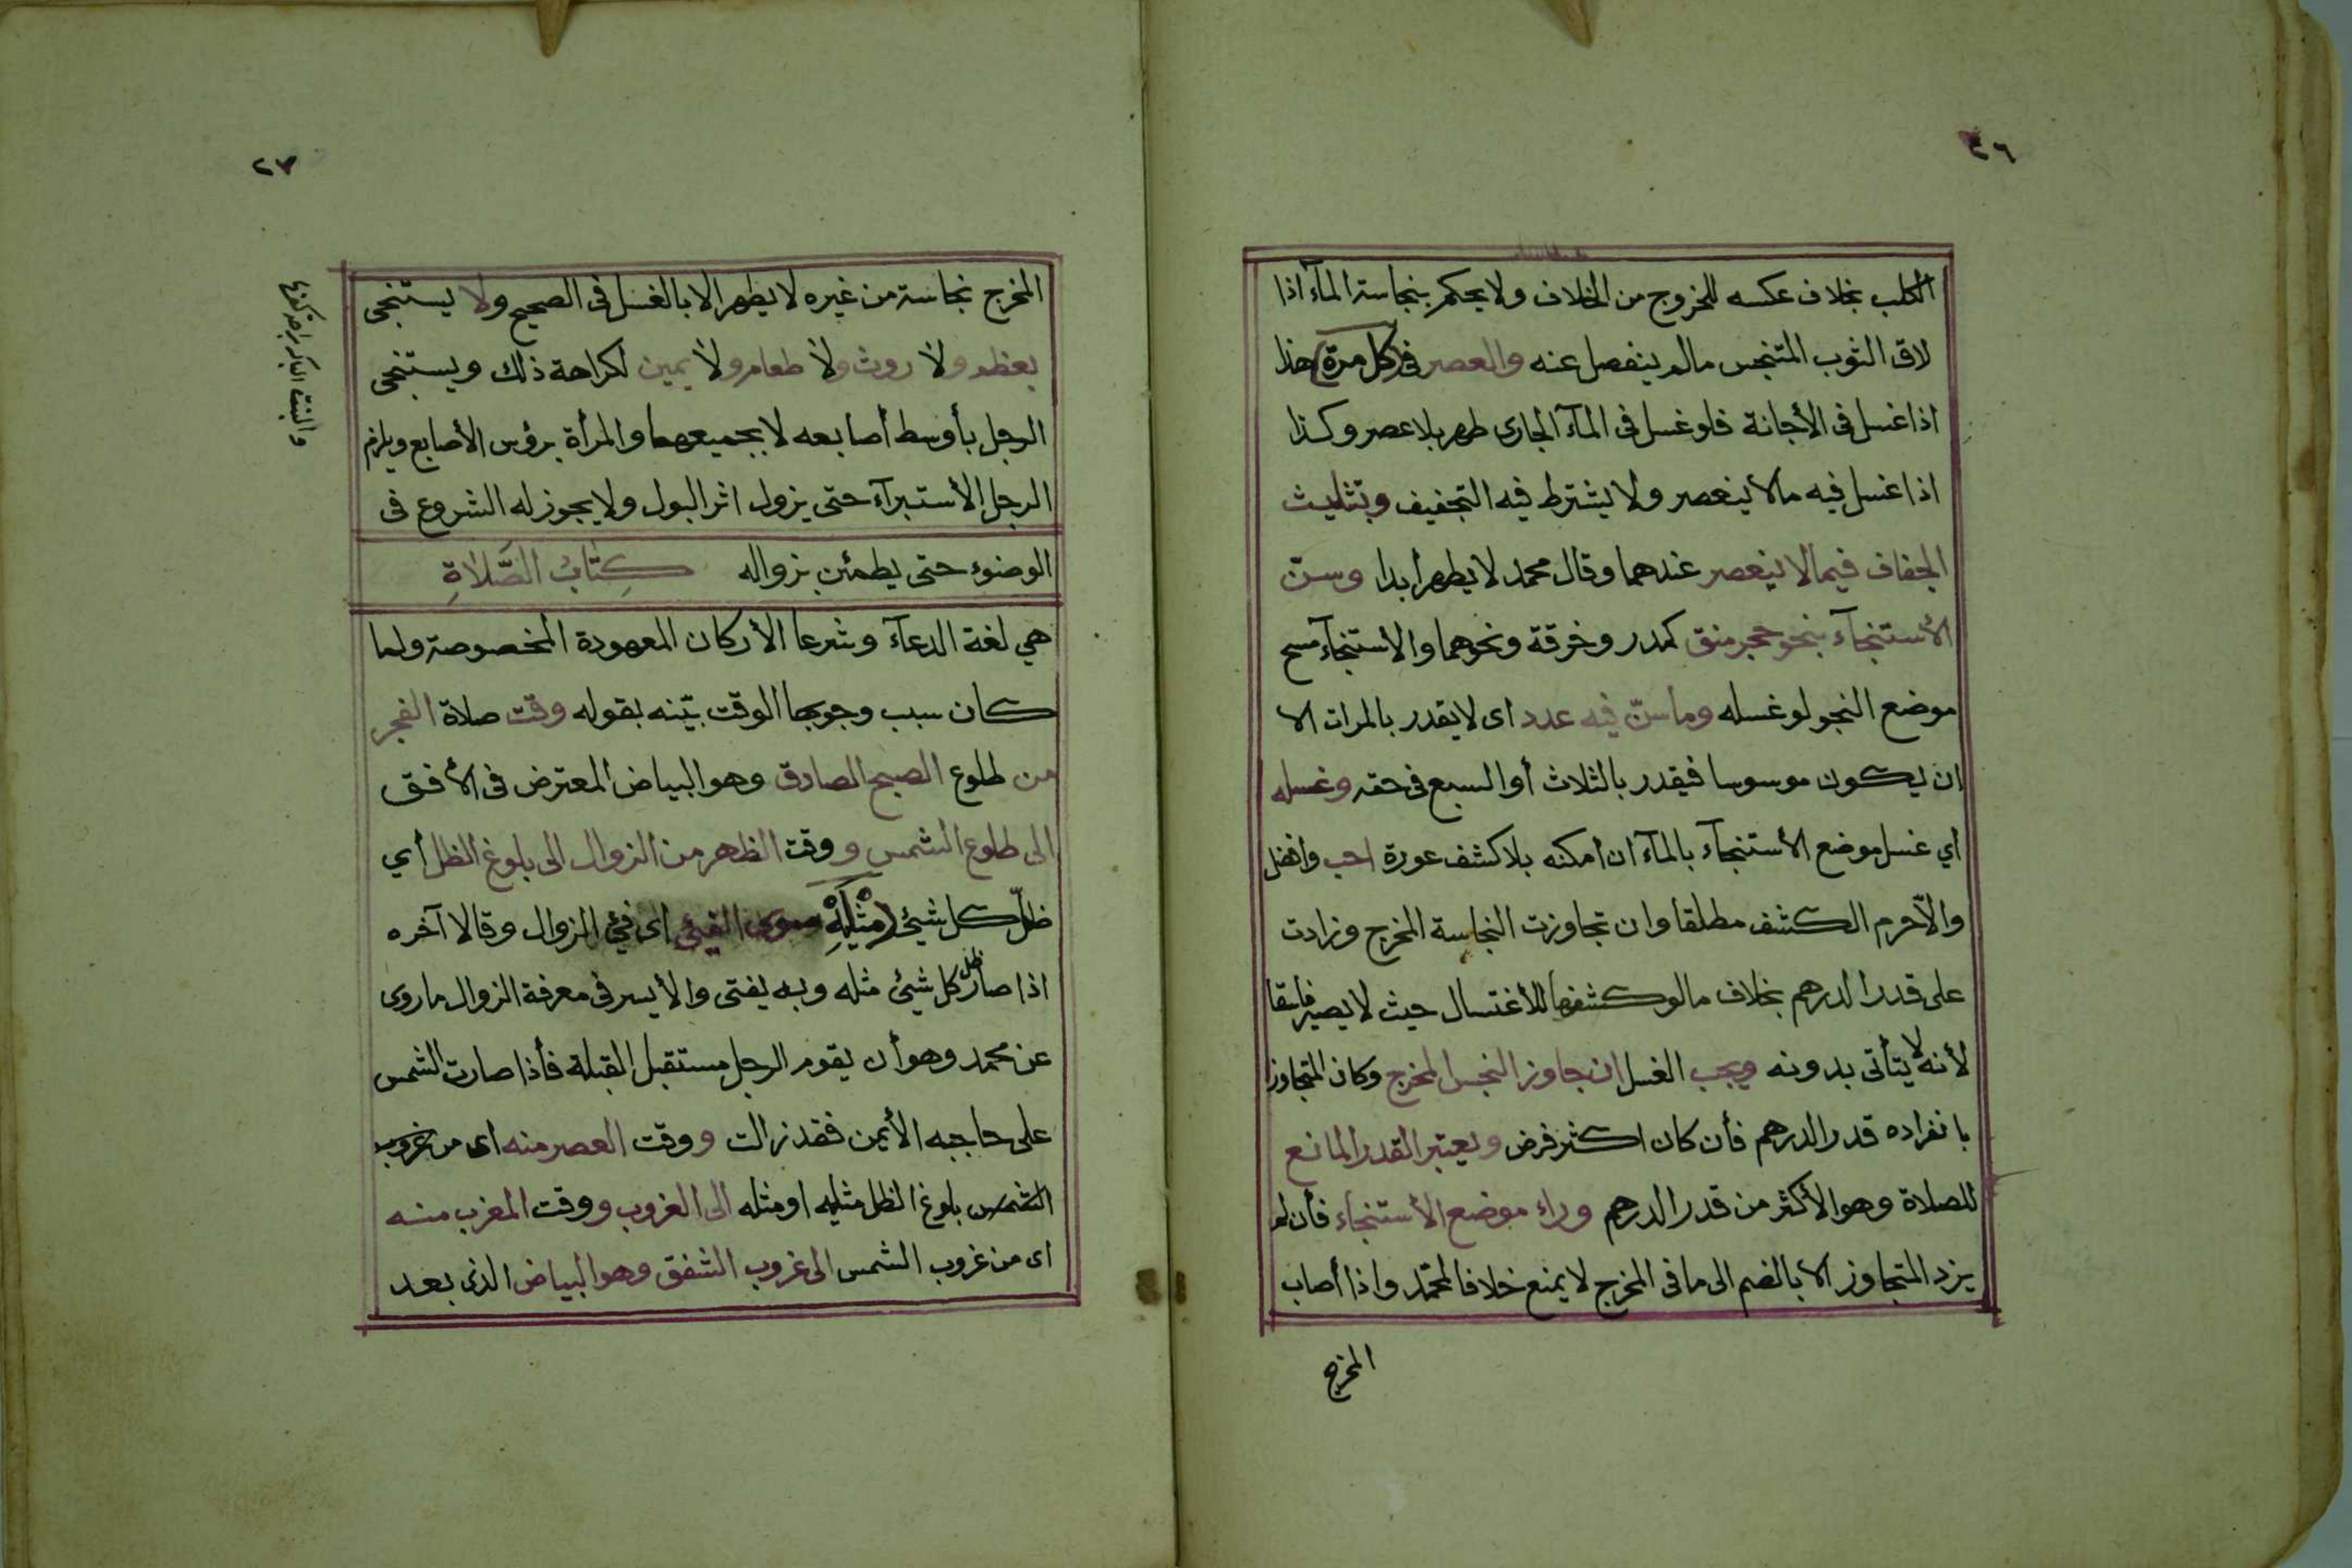 ٢٦
الكلب بخلاف عكسه للخروج من الخلاف ولا يحكم بنجاسة المآء اذا
لاقى الثوب المتنجس مالم ينفصل عنه والعصر في (كل مرة) هذا
اذا غسل فى الأجانة فلو غسل فى المآء الجارى طهر بلا عصر وكذا
اذا غسل فيه مالا ينعصر ولا يشترط فيه التجفيف وبتثليث
الجفاف فيما لا ينعصر عندهما وقال محمد لا يطهر ابدا وسنّ
الأستنجآء بنحو حجر منق كمدر وخرقة ونحوهما والاستنجآء مسح
موضع النجو لو غسله وماسنّ فيه عدد اى لا يقدر بالمرات الا
ان يكون موسوسا فيقدر بالثلاث أو السبع فى حقه وغسله
أي غسل موضع الأستنجآء بالمآء ان امكنه بلا كشف عورة احب وافضل
والّا حرم الكشف مطلقا وان تجاوزت النجاسة المخرج وزادت
على قدر الدرهم بخلاف مالو كشفها للأغتسال حيث لا يصير فاسقا
لأنه لا يتأتى بدونه ويجب الغسل ان جاوز النجس المخرج وكان المتجاوز
بانفراده قدر الدرهم فأن كان اكثر فرض ويعتبر القدر المانع
للصلاة وهو الأكثر من قدر الدرهم وراء موضع الأستنجاء فأن لم
يزد المتجاوز الا بالضم الى ما فى المخرج لا يمنع خلافا لمحمّد واذا أصاب
المخرج
٢٧
المخرج نجاسة من غيره لا يطهر الا بالغسل فى الصحيح ولا يستنجى
بعظم ولا روث ولا طعام ولا يمين لكراهة ذلك ويستنجى
الرجل بأوسط أصابعه لا بجميعهما والمرأة برؤس الأصابع ويلزم
الرجل الأستبرآء حتى يزول اثر البول ولا يجوز له الشروع فى
الوضوء حتى يطمئن بزواله كِتَابُ الصَّلَاةِ
هي لغة الدعآء وشرعا الأركان المعهودة المخصوصة ولما
كان سبب وجوبها الوقت بيّنه بقوله وقت صلاة الفجر
من طلوع الصبح الصادق وهو البياض المعترض فى الأفق
الى طلوع الشمس ووقت الظهر من الزوال الى بلوغ الظل أي
ظلّ كل شيئ (مثليه) سوى الفيئ اى فيئ الزوال وقالا آخره
اذا صار ظل كل شيئ مثله وبه يفتى والأيسر فى معرفة الزوال ماروى
عن محمد وهو أن يقوم الرجل مستقبل القبلة فأذا صارت الشمس
على حاجبه الأيمن فقد زالت ووقت العصر منه اى من غروب
الشمس بلوغ الظل مثليه او مثله الى الغروب ووقت المغرب منه
اى من غروب الشمس الى غروب الشفق وهو البياض الذى بعد